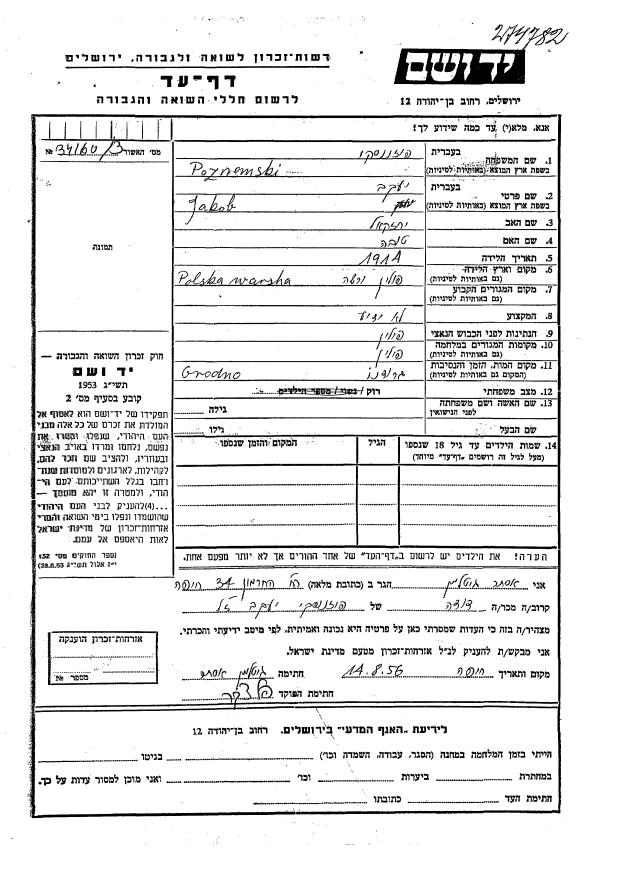 274782
ידושם
רשות-זכרון לשואה ולגבורה, ירושלים
דף-עד
לרשום חללי השואה והגבורה
ירושלים, רחוב בן-יהודה 12
אנא, מלא(י) עד כמה שידוע לך!
מס' האשור № 34160/3
תמונה
1. שם המשפחה בעברית פוזנמסקי
בשפת ארץ המוצא (באותיות לטיניות) Poznemski
2. שם פרטי בעברית יעקב
בשפת ארץ המוצא (באותיות לטיניות) Jakob
3. שם האב יחזקאל
4. שם האם טובה
5. תאריך הלידה 1914
6. מקום וארץ הלידה (גם באותיות לטיניות) פולין ורשה Polska warsha
7. מקום המגורים הקבוע (גם באותיות לטיניות)
8. המקצוע לא ידוע
9. הנתינות לפני הכבוש הנאצי פולין
10. מקומות המגורים במלחמה (גם באותיות לטיניות) פולין
11. מקום המות, הזמן והנסיבות (המקום גם באותיות לטיניות) גרודנו Grodno
12. מצב משפחתי רווק/נשוי/מספר הילדים
13. שם האשה ושם משפחתה לפני הנישואין גילה:
שם הבעל גילו:
14. שמות הילדים עד גיל 18 שנספו (מעל לגיל זה רושמים "דף-עד" מיוחד)
הגיל
המקום והזמן שנספו
חוק זכרון השואה והגבורה —
יד ושם
תשי"ג 1953
קובע בסעיף מס' 2
תפקידו של יד-ושם הוא לאסוף אל
המולדת את זכרם של כל אלה מבני
העם היהודי, שנפלו ומסרו את
נפשם, נלחמו ומרדו באויב הנאצי
ובעוזריו, ולהציב שם וזכר להם,
לקהילות, לארגונים ולמוסדות שנח־
רבו בגלל השתייכותם לעם הי־
הודי, ולמטרה זו יהא מוסמך —
...(4)להעניק לבני העם היהודי
שהושמדו ונפלו בימי השואה והמרי
אזרחות-זכרון של מדינת ישראל
לאות היאספם אל עמם.
(ספר החוקים מס' 132
י"ז אלול תשי"ג 28.8.53)
הערה! את הילדים יש לרשום ב"דף-העד" של אחד ההורים אך לא יותר מפעם אחת.
אני אסתר הגר ב (כתובת מלאה) 34 חיפה
קרוב/ה מכר/ה דודה של יעקב ז"ל
מצהיר/ה בזה כי העדות שמסרתי כאן על פרטיה היא נכונה ואמיתית, לפי מיטב ידיעתי והכרתי.
אני מבקש/ת להעניק לנ"ל אזרחות-זכרון מטעם מדינת ישראל.
מקום ותאריך חיפה 14.8.56 חתימה אסתר
חתימת הפוקד
אזרחות-זכרון הוענקה
מספר №
לידיעת "האגף המדעי" בירושלים, רחוב בן-יהודה 12
הייתי בזמן המלחמה במחנה (הסגר, עבודה, השמדה וכו') בגיטו
במחתרת ביערות וכו' ואני מוכן למסור עדות על כך.
חתימת העד כתובתו